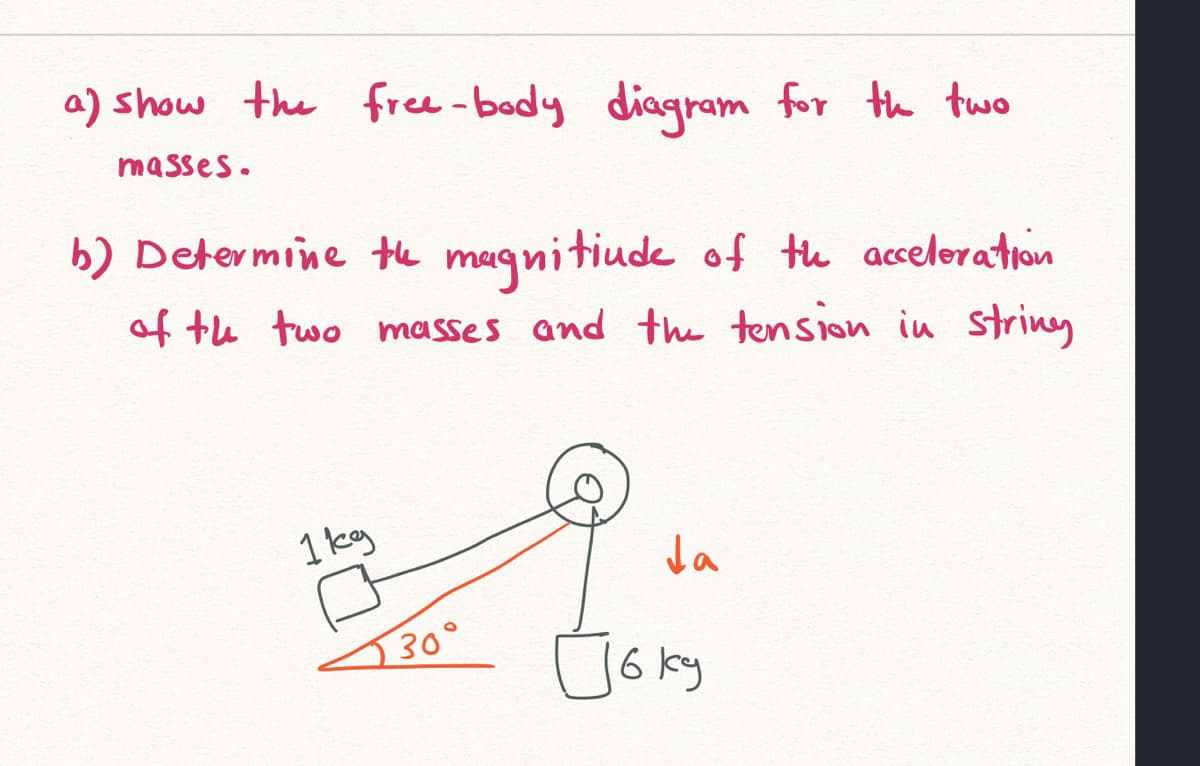 a) show the free-body diagram for th two
masses.
b) Determine the magnitiude of the acceleration
of the two masses and the tension in string
1 kg
↓a
30°
6 kg